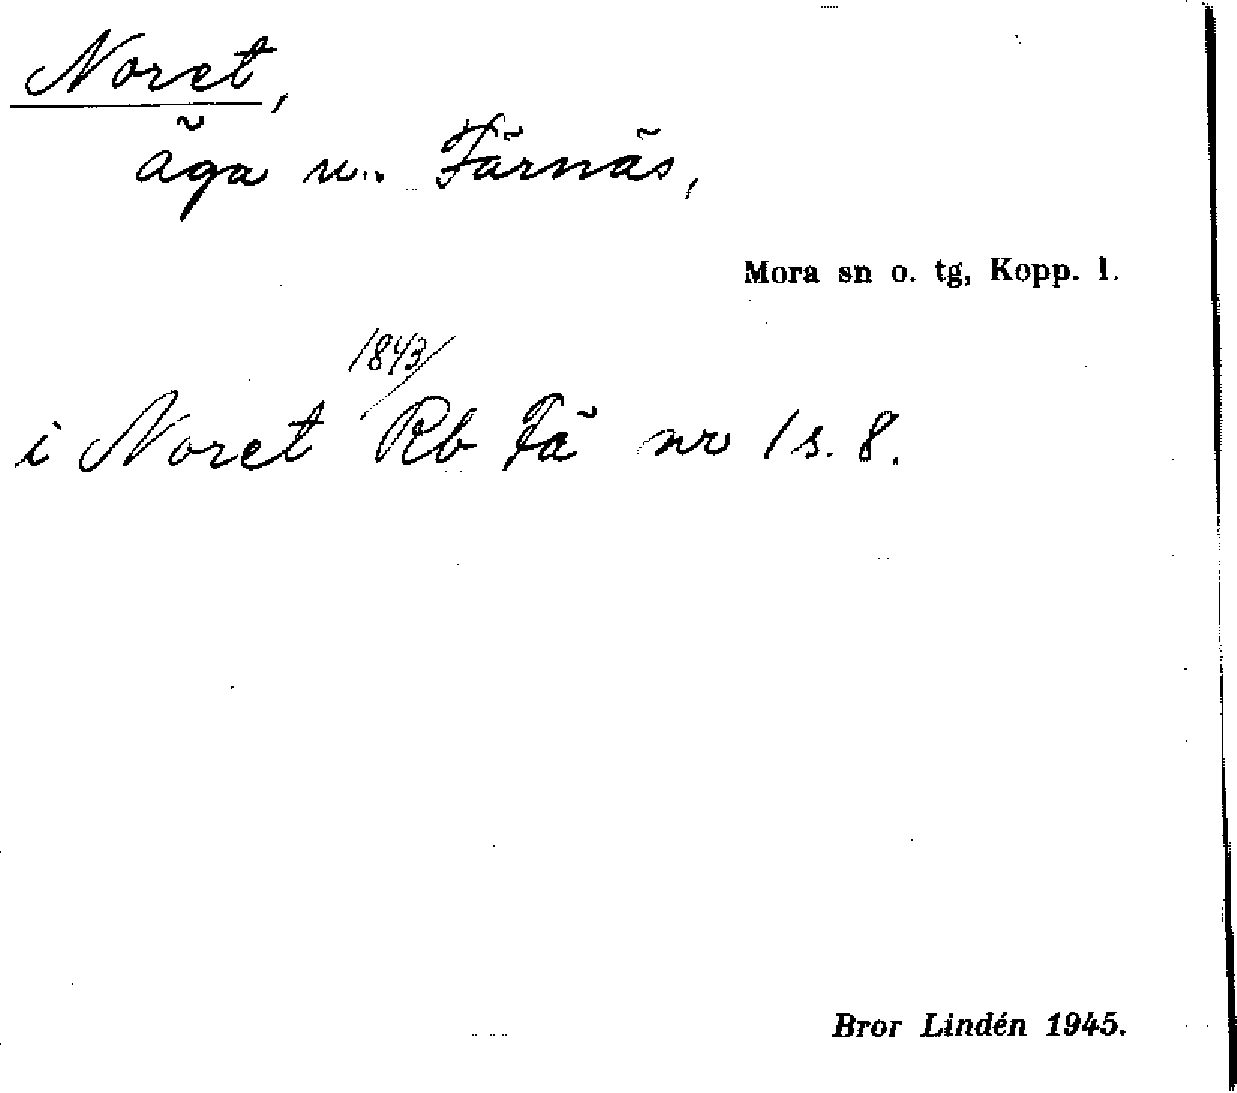 Noret,
äga u. Färnäs,
Mora sn o. tg, Kopp. l.
1843/
i Noret Rb Fä nr 1 s. 8.
Bror Lindén 1945.